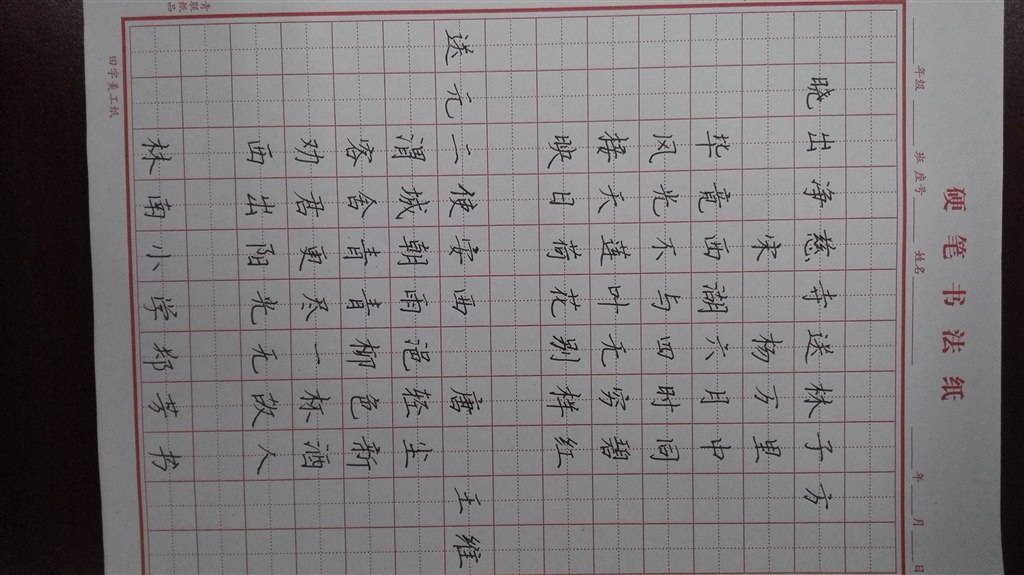 硬笔书法纸
年级 班 座号 姓名 年 月 日
晓出净慈寺送林子方
宋 杨万里
毕竟西湖六月中
风光不与四时同
接天莲叶无穷碧
映日荷花别样红
送元二使安西 唐 王维
渭城朝雨浥轻尘
客舍青青柳色新
劝君更尽一杯酒
西出阳光无故人
林南小学郑芳书
青联纸品
田字美工纸